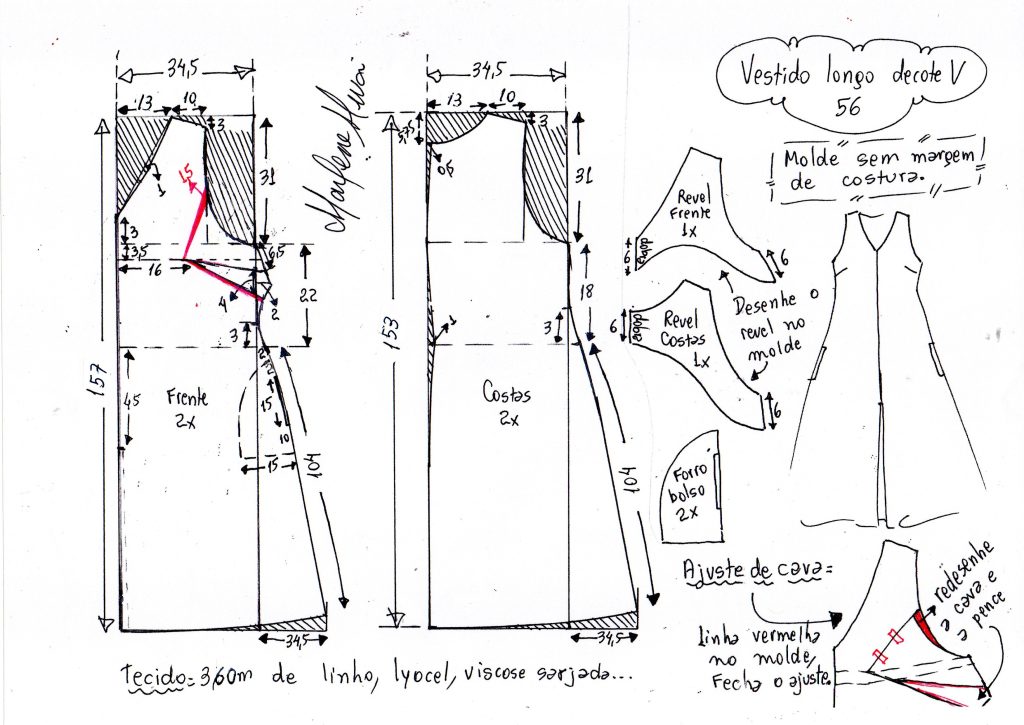 34,5
13
10
3
1
1,5
31
3
3,5
16
6,5
4
2
22
3
157
45
Frente
2x
2
15
10
15
104
34,5
Marlene Mukai
34,5
13
10
3
31
18
3
1
153
Costas
2x
104
34,5
Vestido longo decote V
56
Molde sem margem
de costura.
Revel
Frente
1x
dobra
6
6
Desenhe o
revel no
molde
dobra
6
Revel
Costas
1x
6
Forro
bolso
2x
Ajuste de cava=
Linha vermelha
no molde,
Fecha o ajuste.
redesenhe
a cava e
a pence
Tecido= 3,60m de linho, lyocel, viscose sarjada...